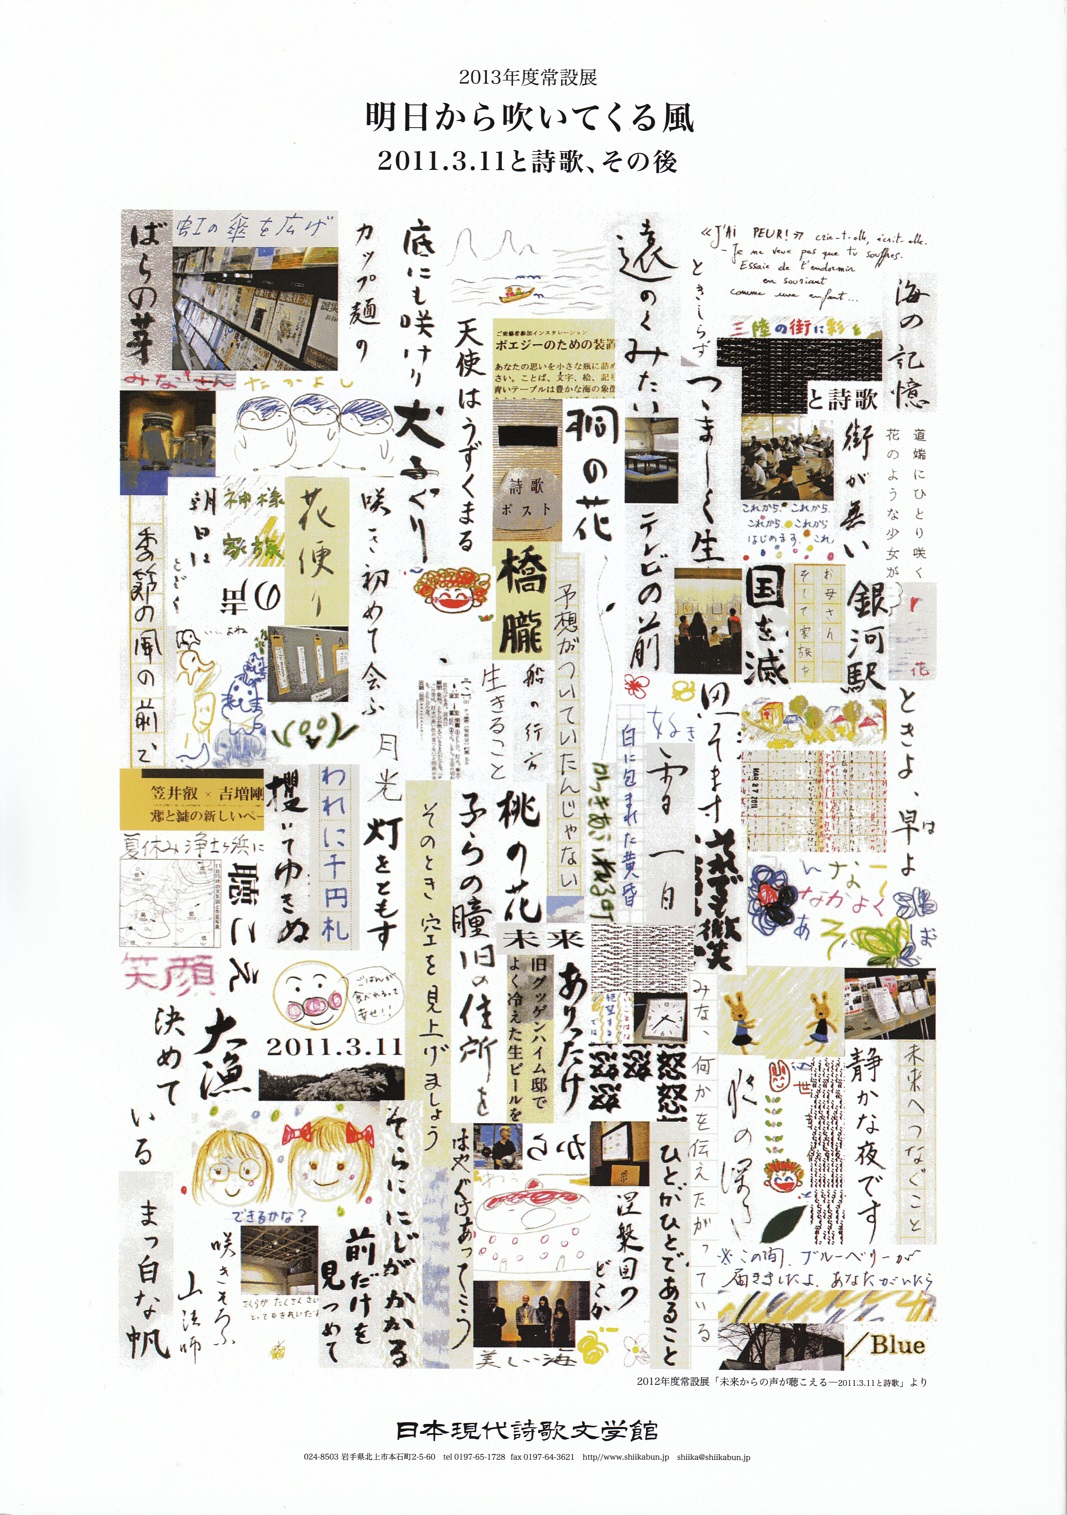 2013年度常設展
明日から吹いてくる風
2011.3.11と詩歌、その後
ばらの芽
虹の傘を広げ
カップ麺の
底にも咲けり
犬ふぐり
天使はうずくまる
ご来場者参加インスタレーション
ポエジーのための装置
あなたの思いを小さな瓶に詰め
さい。ことば、文字、絵、記号
青いテーブルは豊かな海の象徴
遠のくみたい
ときしらず
«J'AI PEUR!» crie-t-elle, écrit-elle.
- Je ne veux pas que tu souffres.
Essaie de t'endormir
en souriant
comme une enfant...
海の記憶
三陸の街に彩を
と詩歌
みなさん たかよし
つましく生
街が無い
道端にひとり咲く
花のような少女が
詩歌
ポスト
桐の花
これから、これから
これから これから
はじめます、これ
明日は
神様
家族
の声
花便り
咲き初めて会ふ
季節の風の前で
橋朧
予想がついていたんじゃない
テレビの前
国を滅
お母さん
そして家族を
銀河駅
花
船の行方
生きること
ときよ、早よ
は
白に包まれた黄昏
雪一日
笠井叡×吉増剛
夏休み浄土ヶ浜に
聴こえ
攫いてゆきぬ
われに千円札
月光
灯をともす
そのとき空を見上げましょう
子らの瞳
桃の花
それでも微笑
なかよく
未来
旧の住所を
旧グッゲンハイム邸で
よく冷えた生ビールを
ありったけ
笑顔
決めている
大漁
ごはんが
食べれるって
幸せ!!
2011.3.11
みな、何かを伝えたがっている
静かな夜です
未来へつなぐこと
から
そらににじがかかる
できるかな?
まっ白な帆
咲きそろふ
山法師
前だけを
見つめて
涅槃図の
どこか
ひとがひとであること
※この間、ブルーベリーが
届きましたよ、あなたがいたら
美しい海
/Blue
2012年度常設展「未来からの声が聴こえる―2011.3.11と詩歌」より
日本現代詩歌文学館
024-8503 岩手県北上市本石町2-5-60 tel 0197-65-1728 fax 0197-64-3621 http//www.shiikabun.jp shiika@shiikabun.jp